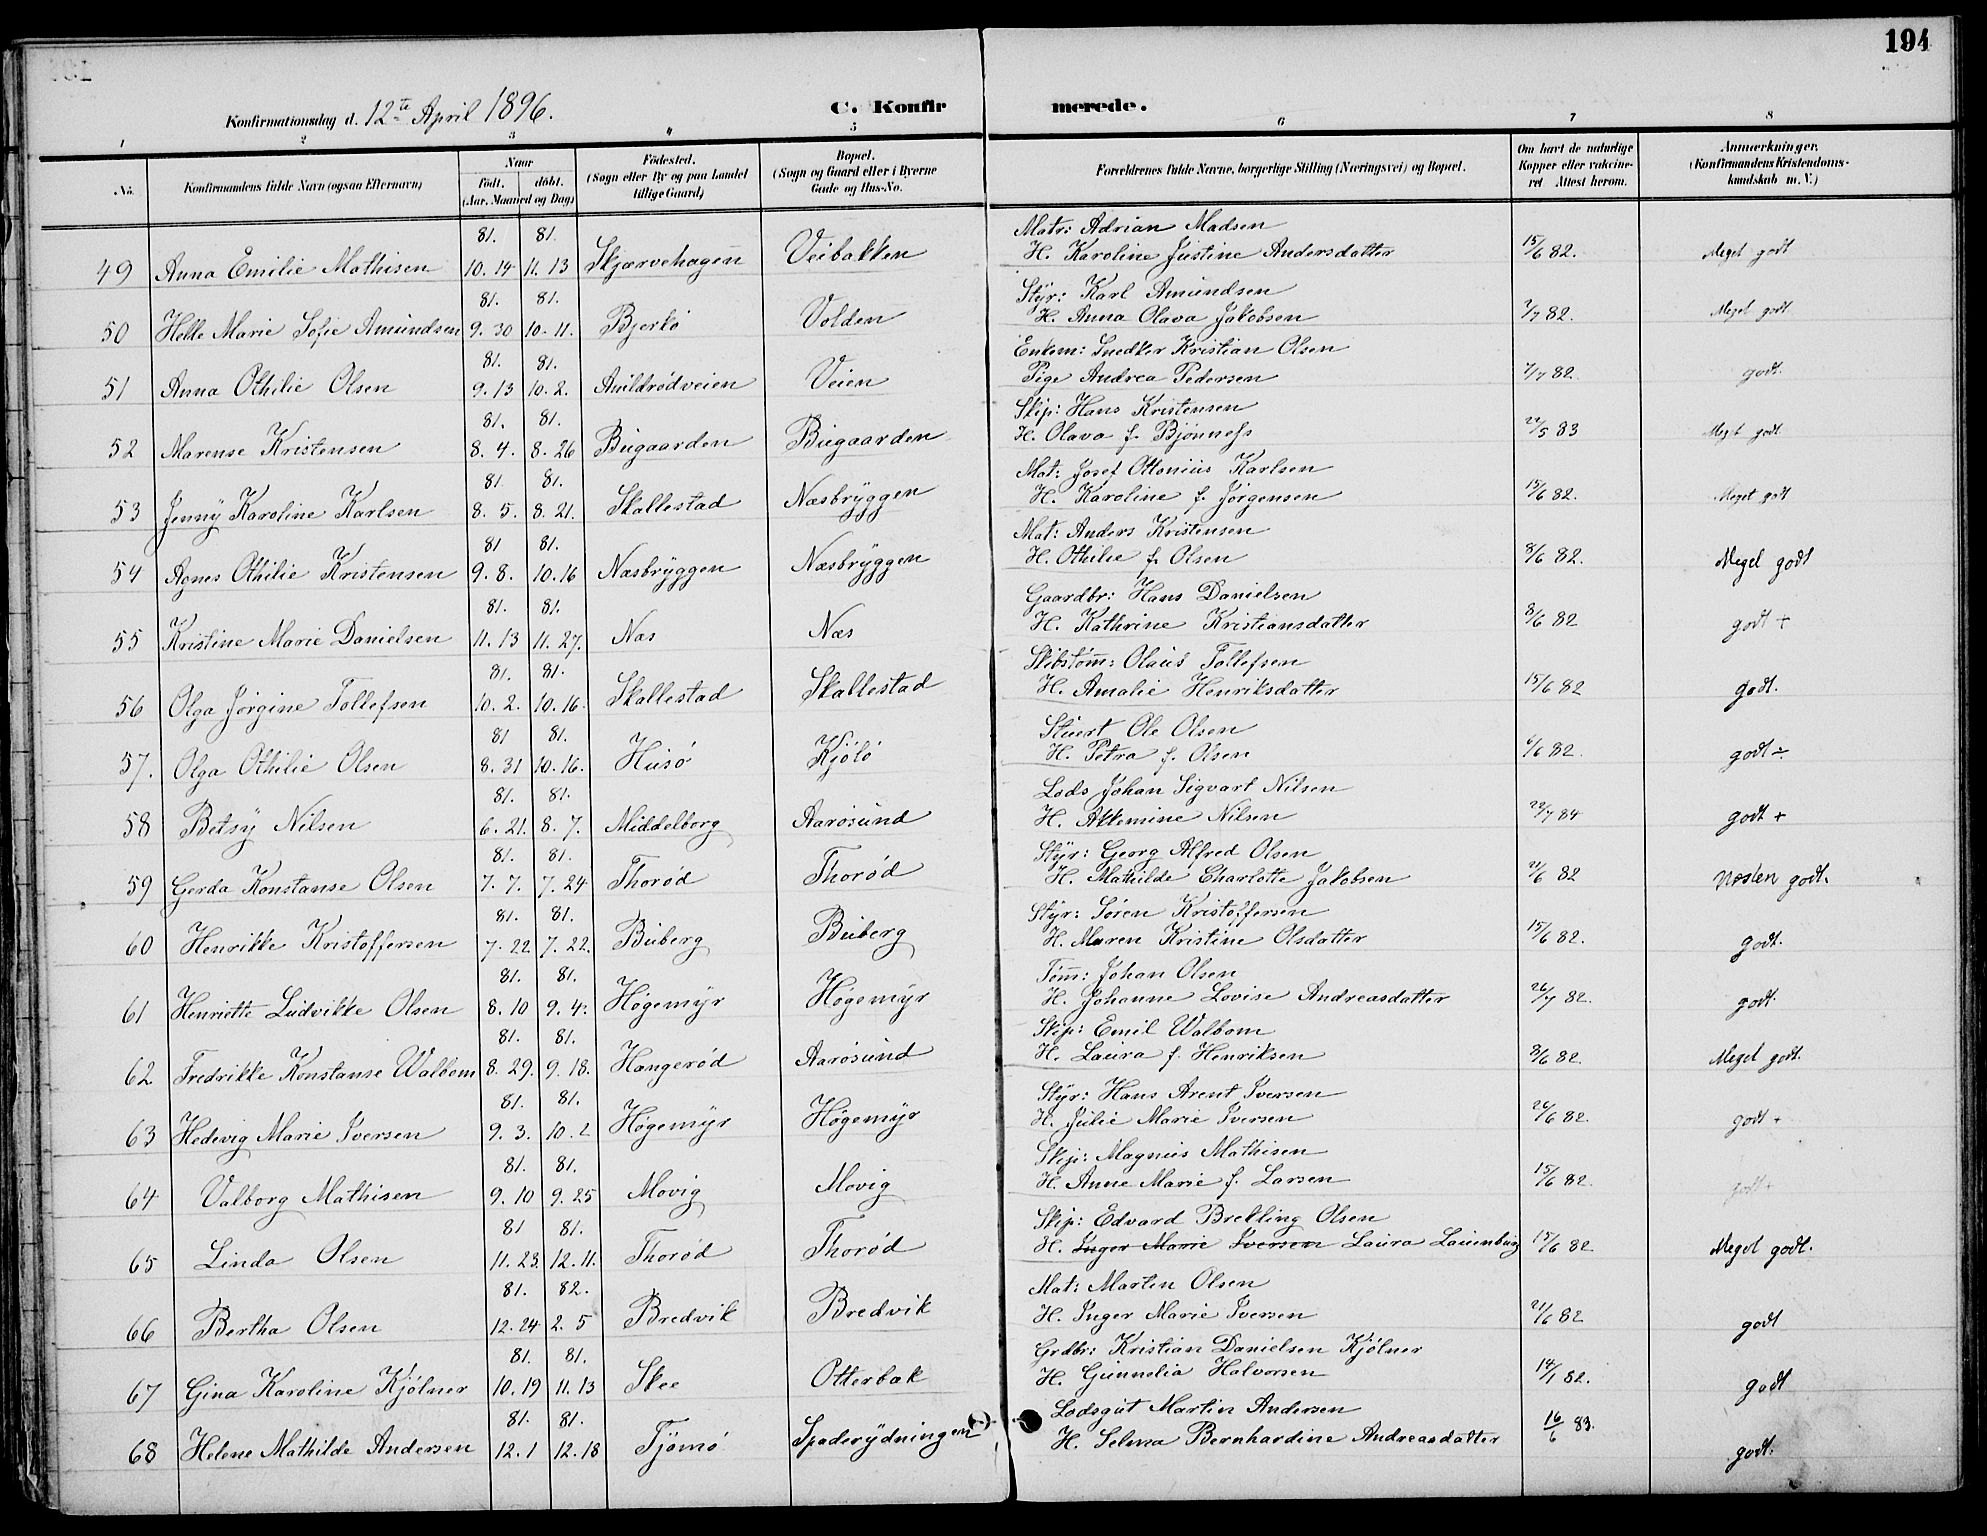 194
Konfirmationsdag d. 12te April 1896.
C. Konfirmerede.
1 2 3 4 5 6 7 8
No. Konfirmandens fulde Navn (ogsaa Efternavn) Naar født. døbt. (Aar, Maaned og Dag) Fødested. (Sogn eller By og paa Landet tillige Gaard) Bopæl. (Sogn og Gaard eller i Byerne Gade og Hus-No. Forældrenes fulde Navne, borgerlige Stilling (Næringsvei) og Bopæl. Om havt de naturlige Kopper eller vakcineret Attest herom. Anmærkninger. (Konfirmandens Kristendomskundskab m. V.)
81. 81. Matr: Adrian Madsen
49 Anna Emilie Mathisen 10. 14 11. 13 Skjærvehagen Veibakken H. Karoline Justine Andersdatter 15/6 82. Meget godt
81. 81. Styr: Karl Amundsen
50 Helle Marie Sofie Amundsen 9. 30 10. 11. Bjerkö Volden H. Anna Olava Jakobsen 7/7 82. Meget godt
81. 81. Enkem: Snedker Kristian Olsen
51 Anna Othilie Olsen 9. 13 10. 2. Anildrödveien Veien Pige Andrea Pedersen 7/7 82. godt.
81. 81. Skip: Hans Kristensen
52 Marense Kristensen 8. 4. 8. 26 Bugaarden Bugaarden H. Olava f. Bjönness 22/5 83 Meget godt
81 81. Mat: Josef Ottonius Karlsen
53 Jenny Karoline Karlsen 8. 5. 8. 21. Skallestad Næsbryggen H. Karoline f. Jörgensen 15/6 82. Meget godt
81 81. Mat: Anders Kristensen
54 Agnes Othilie Kristensen 9. 8. 10. 16 Næsbryggen Næsbryggen H. Othilie f. Olsen 8/6 82. Meget godt
81. 81. Gaardbr: Hans Danielsen
55 Kristine Marie Danielsen 11. 13 11. 27. Næs Næs H. Kathrine Kristiansdatter 8/6 82 godt +
81. 81. Skibstöm̄: Olaus Tollefsen
56 Olga Jörgine Tollefsen 10. 2. 10. 16. Skallestad Skallestad H. Amalie Henriksdatter 15/6 82 godt.
81 81. Stuert Ole Olsen
57. Olga Othilie Olsen 8. 31 10. 16. Husö Kjölö H. Petra f. Olsen 6/6 82. godt ÷
81. 81. Lods Johan Sigvart Nilsen
58 Betsy Nilsen 6. 21. 8. 7. Middelborg Aarösund H. Akkemine Nilsen 22/7 84 godt +
81. 81. Styr: Georg Alfred Olsen
59 Gerda Konstanse Olsen 7. 7. 7. 24 Thoröd Thoröd H. Mathilde Charlotte Jakobsen 21/6 82 Næsten godt.
81. 81. Styr: Sören Kristoffersen
60 Henrikke Kristoffersen 7. 22 7. 22. Buberg Buberg H. Maren Kristine Olsdatter 15/6 82. godt.
81. 81. Töm̄: Johan Olsen
61 Henriette Ludvikke Olsen 8. 10 9. 4. Högemyr Högemyr H. Johanne Lovise Andreasdatter 26/7 82. godt.
81. 81. Skip: Emil Walbom
62 Fredrikke Konstanse Walbom 8. 29. 9. 18. Hangeröd Aarösund H. Laura f. Henriksen 8/6 82. Meget godt.
81. 81. Styr: Hans Arent Iversen
63 Hedevig Marie Iversen 9. 3. 10. 2 Högemyr Högemyr H. Julie Marie Iversen 26/6 82. godt +
81. 81. Skip: Magnus Mathisen
64 Valborg Mathisen 9. 10 9. 25 Movig Movig H. Anne Marie f. Larsen 15/6 82. godt +
81 81. Skip: Edvard Brekling Olsen
65 Linda Olsen 11. 23. 12. 11. Thoröd Thoröd H. Inger Marie Iversen Laura Lauenburg 15/6 82 Meget godt.
81. 82. Mat: Martin Olsen
66 Bertha Olsen 12. 24 2. 5 Bredvik Bredvik H. Inger Marie Iversen 21/6 82 godt
81. 81. Grdbr: Kristian Danielsen Kjölner
67 Gina Karoline Kjölner 10. 19 11. 13 Skee Otterbæk H. Gunnelia Halvorsen 14/1 82. godt
81. 81. Lodsgut Martin Andersen
68 Helene Mathilde Andersen 12. 1 12. 18 Tjömö Spaderydningen H. Selma Bernhardine Andreasdatter 16/6 83. godt.